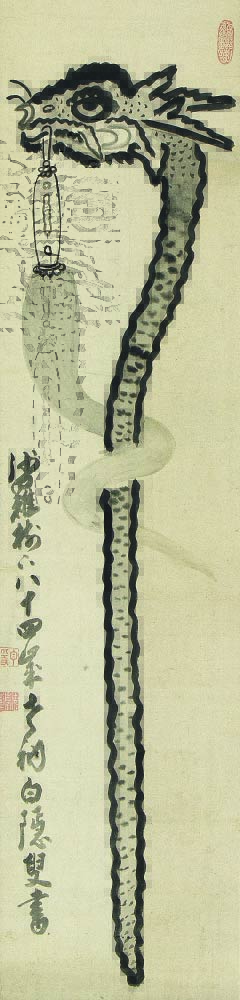 沙羅樹下八十四歳老衲白隱叟書